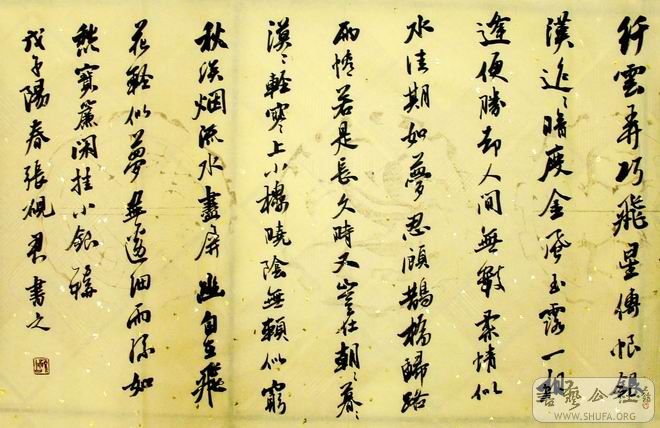 纤雲弄巧飛星傳恨銀
漢迢〻暗度金風玉露一相
逢便勝却人間無數柔情似
水佳期如夢忍顧鵲橋歸路
兩情若是長久時又豈在朝〻暮〻
漠〻輕寒上小樓曉陰無賴似窮
秋淡烟流水畫屏幽自在飛
花輕似夢無邊細雨如
愁寶簾闲挂小銀鈎
戊子陽春張硯君書之
書藝公社
WWW.SHUFA.ORG